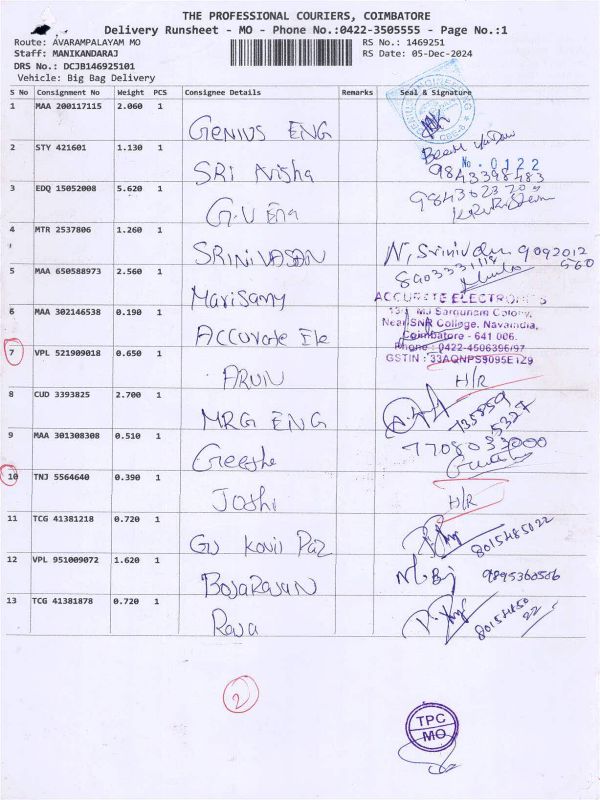 THE PROFESSIONAL COURIERS, COIMBATORE
Delivery Runsheet - MO - Phone No.:0422-3505555 - Page No.:1
Route: AVARAMPALAYAM MO
RS No.: 1469251
Staff: MANIKANDARAJ
RS Date: 05-Dec-2024
DRS No.: DCJB146925101
Vehicle: Big Bag Delivery
S No Consignment No Weight PCS Consignee Details Remarks Seal & Signature
1 MAA 200117115 2.060 1
GENIUS ENG
2 STY 421601 1.130 1
SRI Arisha
No. 0122
9843398483
3 EDQ 15052008 5.620 1
G.V Eng
4 MTR 2537806 1.260 1
SRINIVASAN
5 MAA 650588973 2.560 1
Marisamy
ACCURATE ELECTRONICS
6 MAA 302146538 0.190 1
Accurate Ele
Near SNR College, Navaindia,
Coimbatore - 641 006.
Phone : 0422-4506396/97
GSTIN : 33AQNPS9095E1Z9
7 VPL 521909018 0.650 1
ARUN
H/R
8 CUD 3393825 2.700 1
MRG ENG
9 MAA 301308308 0.510 1
7708033000
10 TNJ 5564640 0.390 1
Joshi
H/R
11 TCG 41381218 0.720 1
8015485022
12 VPL 951009072 1.620 1
BOJARAJAN
9895360506
13 TCG 41381878 0.720 1
2
TPC
MO